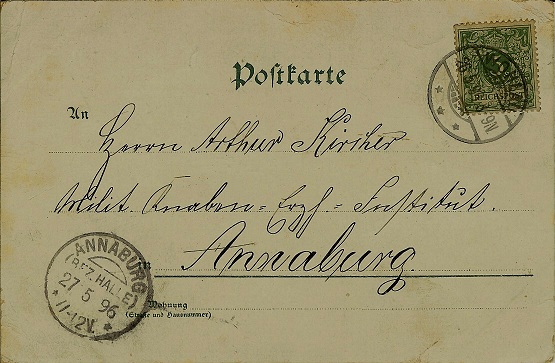 Postkarte
An
Herrn Arthur Kircher
Milit. Knaben-Erzh.-Institut.
in Annaburg.
Wohnung
(Straße und Hausnummer)
ANNABURG
(BEZ. HALLE)
27 5 96
11-12V.